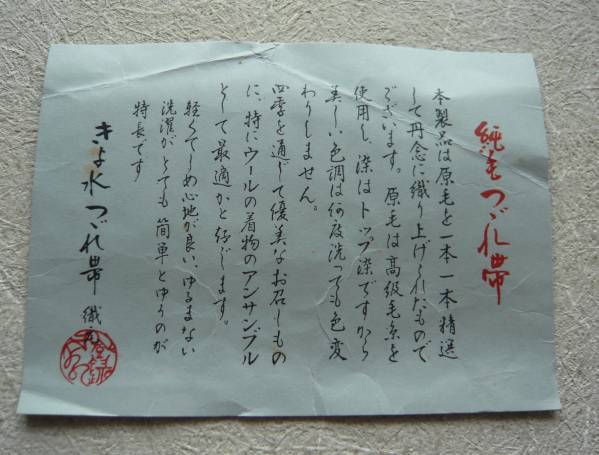 純毛つづれ帯
本製品は原毛を一本一本精選
して丹念に織り上げられたもので
ございます。原毛は高級毛糸を
使用し、染はトップ染ですから
美しい色調は何度洗っても色変
わりしません。
四季を通じて優美なお召しもの
に、特にウールの着物のアンサンブル
として最適かと存じます。
軽くてしめ心地が良い、ゆるまない
洗濯がとても簡単とゆうのが
特長です
きよ水つづれ帯 織元
登録